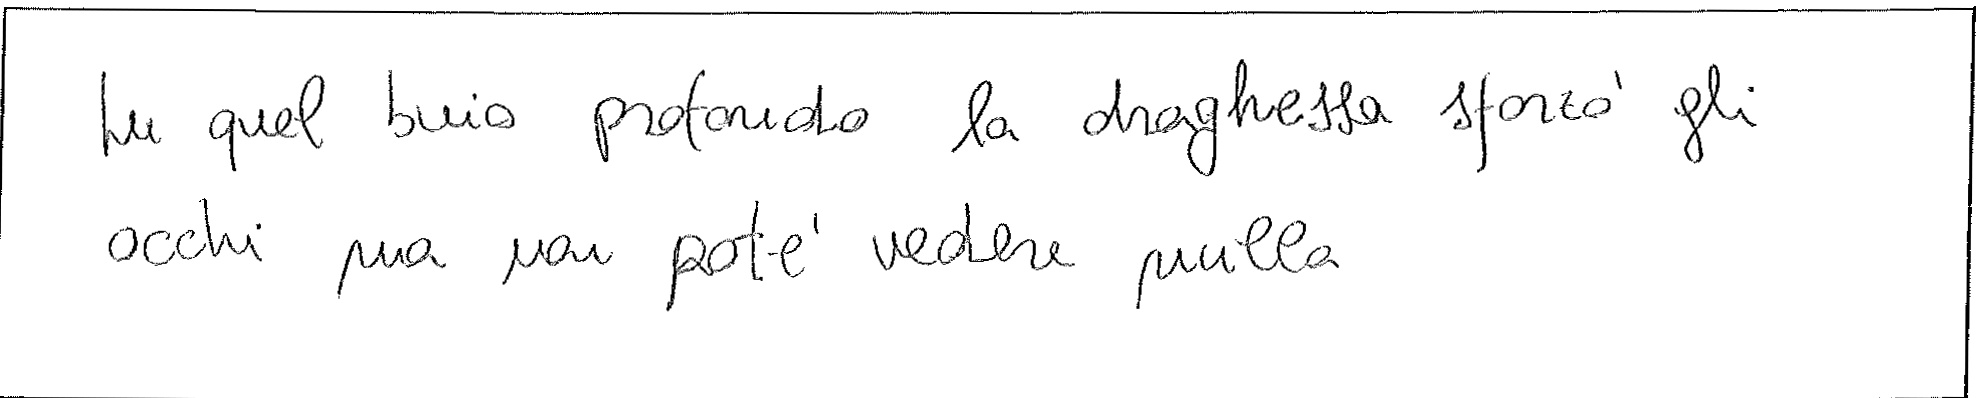 In quel buio profondo la draghessa sforzo' gli
occhi ma non pote' vedere nulla